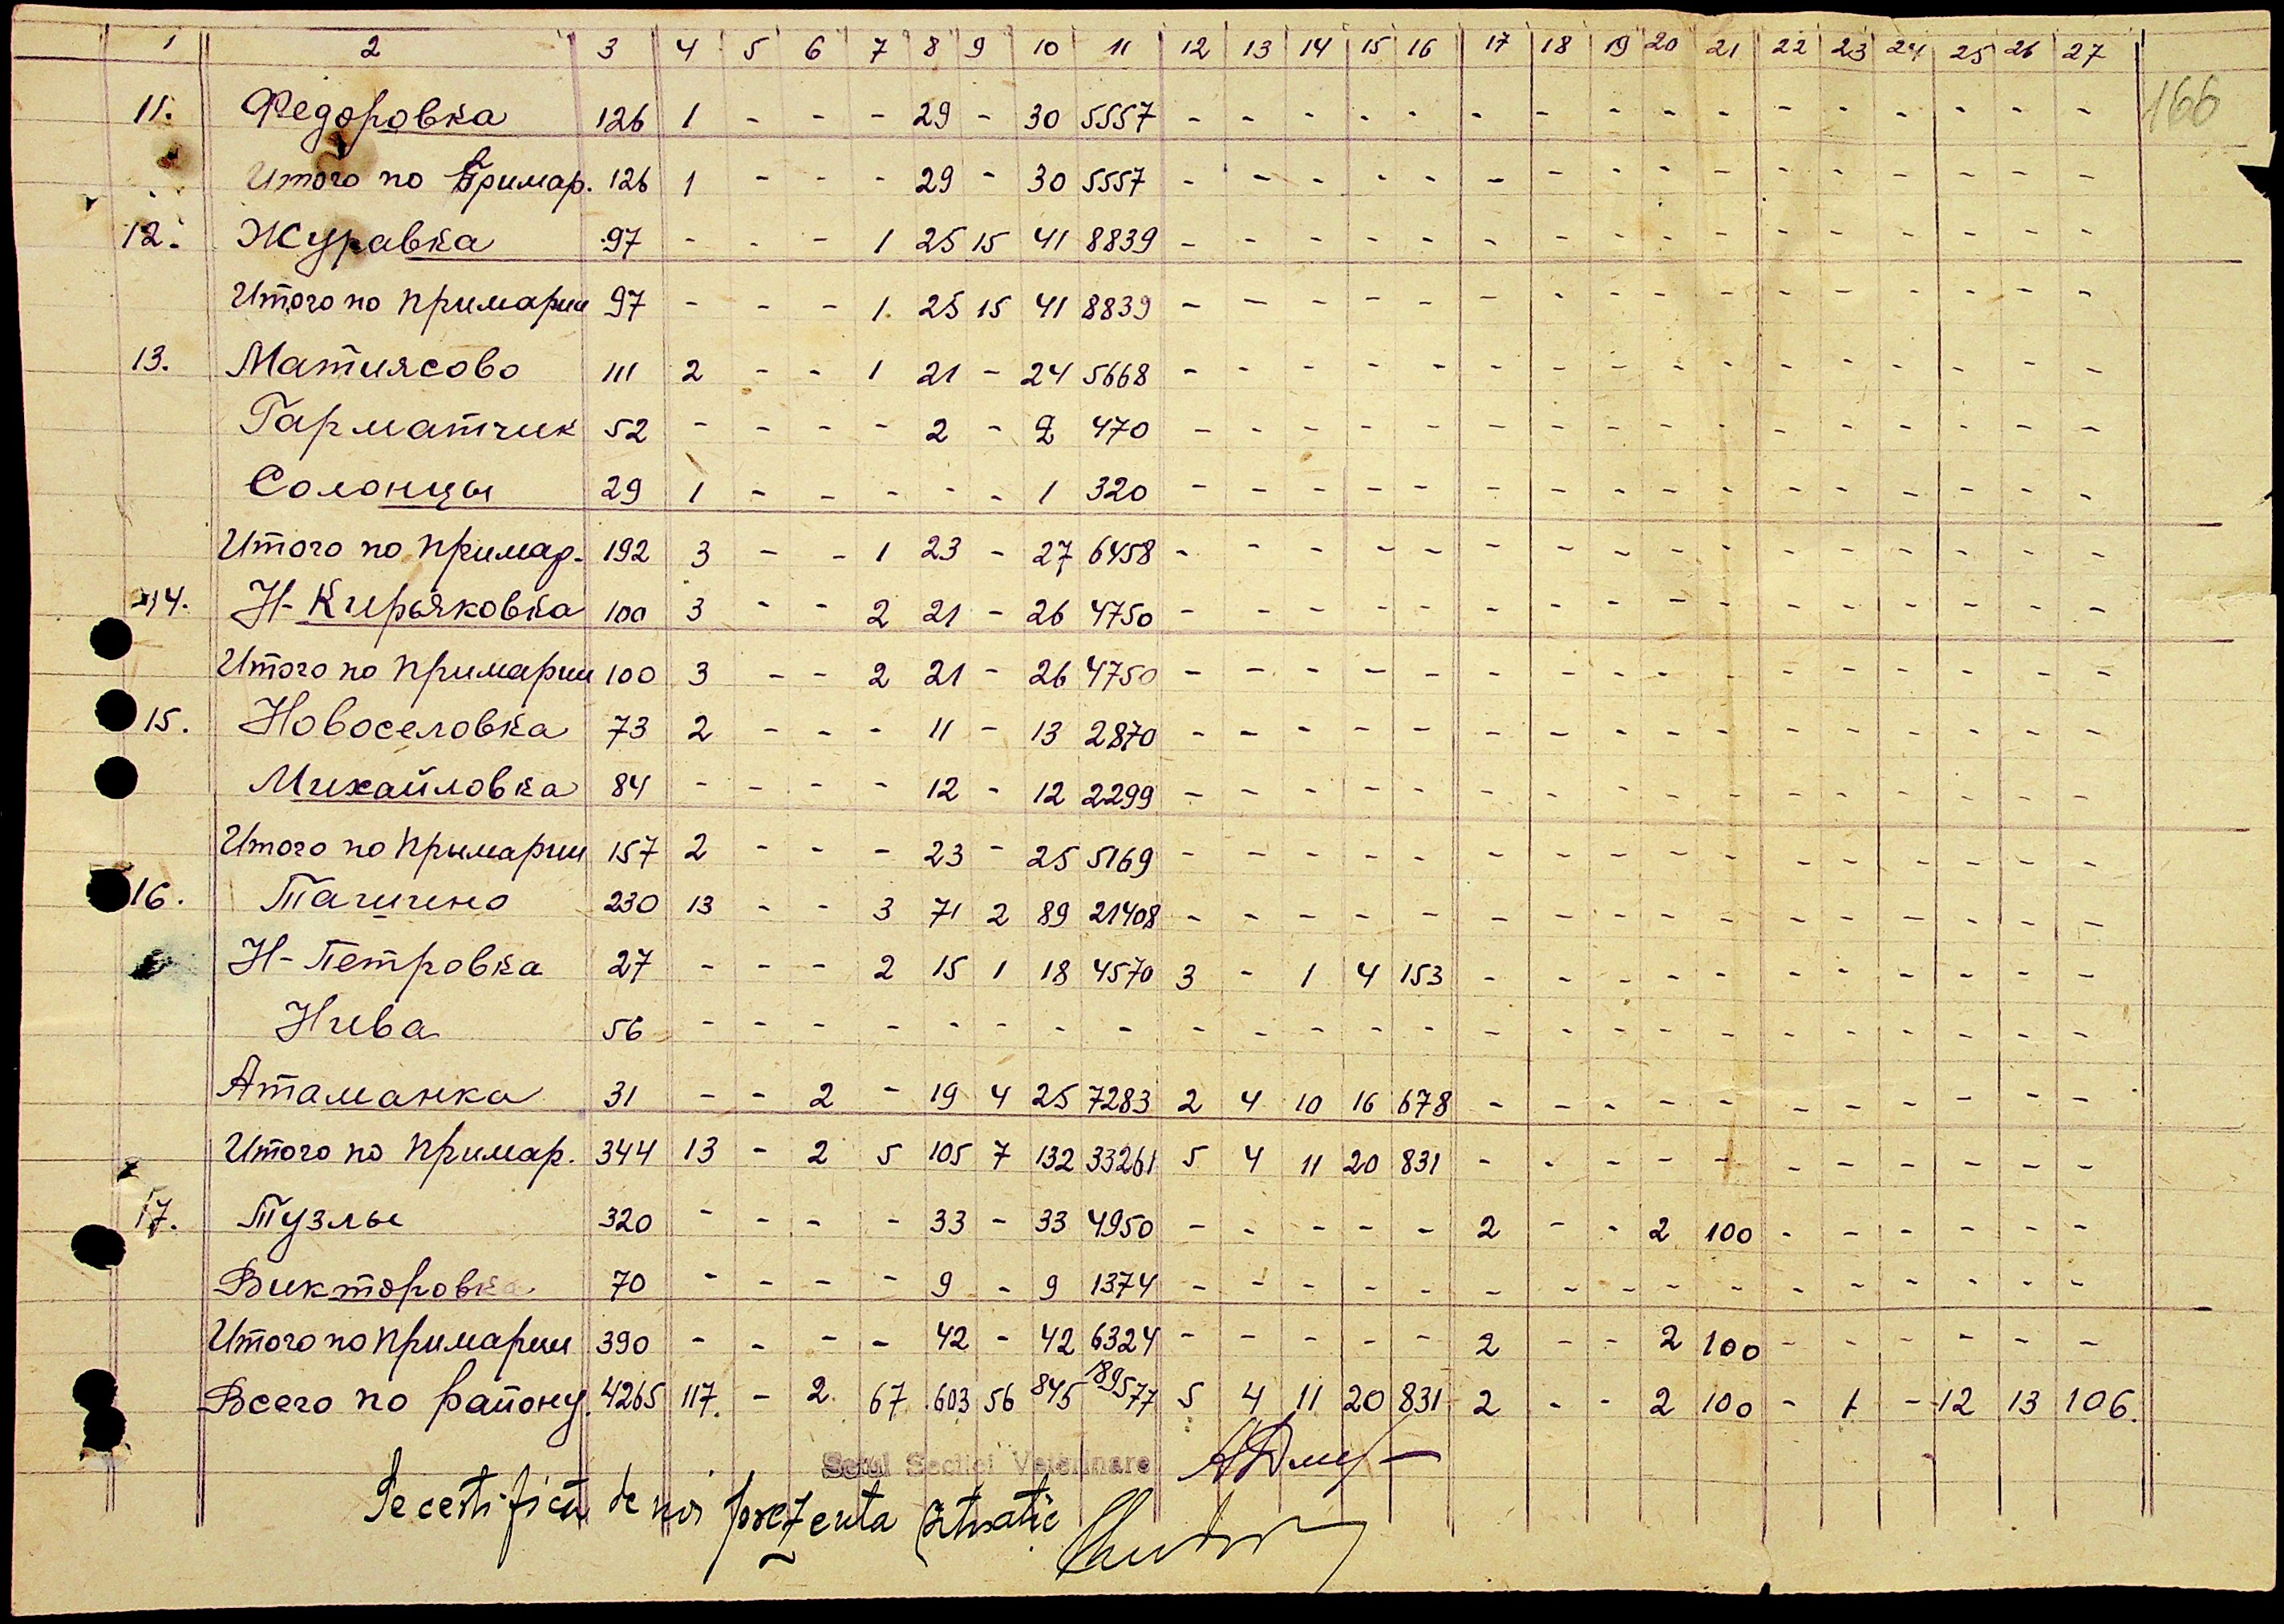 1 2 3 4 5 6 7 8 9 10 11 12 13 14 15 16 17 18 19 20 21 22 23 24 25 26 27
166
11. Федоровка 126 1 - - - 29 - 30 5557 - - - - - - - - - - - - - - - -
Итого по Примар. 126 1 - - - 29 - 30 5557 - - - - - - - - - - - - - - - -
12. Журавка 97 - - - 1 25 15 41 8839 - - - - - - - - - - - - - - - -
Итого по примарии 97 - - - 1 25 15 41 8839 - - - - - - - - - - - - - - - -
13. Матиясово 111 2 - - 1 21 - 24 5668 - - - - - - - - - - - - - - - -
Гарматчик 52 - - - - 2 - 2 470 - - - - - - - - - - - - - - - -
Солонцы 29 1 - - - - - 1 320 - - - - - - - - - - - - - - - -
Итого по примар. 192 3 - - 1 23 - 27 6458 - - - - - - - - - - - - - - - -
14. Н-Кирьяковка 100 3 - - 2 21 - 26 4750 - - - - - - - - - - - - - - - -
Итого по примарии 100 3 - - 2 21 - 26 4750 - - - - - - - - - - - - - - - -
15. Новоселовка 73 2 - - - 11 - 13 2870 - - - - - - - - - - - - - - - -
Михайловка 84 - - - - 12 - 12 2299 - - - - - - - - - - - - - - - -
Итого по прымарии 157 2 - - - 23 - 25 5169 - - - - - - - - - - - - - - - -
16. Тагигино 230 13 - - 3 71 2 89 21408 - - - - - - - - - - - - - - - -
Н-Петровка 27 - - - 2 15 1 18 4570 3 - 1 4 153 - - - - - - - - - - -
Нива 56 - - - - - - - - - - - - - - - - - - - - - - - -
Атаманка 31 - - 2 - 19 4 25 7283 2 4 10 16 678 - - - - - - - - - - -
Итого по примар. 344 13 - 2 5 105 7 132 33261 5 4 11 20 831 - - - - - - - - - - -
17. Тузлы 320 - - - - 33 - 33 4950 - - - - - 2 - - 2 100 - - - - - -
Викторовка 70 - - - - 9 - 9 1374 - - - - - - - - - - - - - - - -
Итого по примарии 390 - - - - 42 - 42 6324 - - - - - 2 - - 2 100 - - - - - -
Всего по району. 4265 117 - 2 67 603 56 845 189577 5 4 11 20 831 2 - - 2 100 - 1 - 12 13 106.
Seful Secției Veterinare
Se certifică de noi prezenta situatie